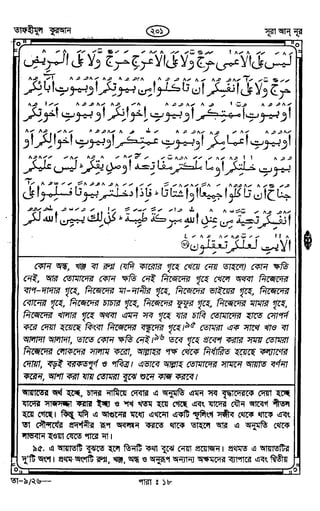 তাফহীমুল কুরআন
২০১
সূরা আন্ নূর
لَيْسَ عَلَى الْأَعْمَىٰ حَرَجٌ وَلَا عَلَى الْأَعْرَجِ حَرَجٌ وَلَا عَلَى الْمَرِيضِ
حَرَجٌ وَلَا عَلَىٰ أَنْفُسِكُمْ أَنْ تَأْكُلُوا مِنْ بُيُوتِكُمْ أَوْ بُيُوتِ آبَائِكُمْ
أَوْ بُيُوتِ أُمَّهَٰتِكُمْ أَوْ بُيُوتِ إِخْوَانِكُمْ أَوْ بُيُوتِ أَخَوَٰتِكُمْ
أَوْ بُيُوتِ أَعْمَامِكُمْ أَوْ بُيُوتِ عَمَّٰتِكُمْ أَوْ بُيُوتِ أَخْوَالِكُمْ أَوْ
بُيُوتِ خَٰلَٰتِكُمْ أَوْ مَا مَلَكْتُمْ مَفَاتِحَهُ أَوْ صَدِيقِكُمْ ۚ لَيْسَ عَلَيْكُمْ
جُنَاحٌ أَنْ تَأْكُلُوا جَمِيعًا أَوْ أَشْتَاتًا ۚ فَإِذَا دَخَلْتُمْ بُيُوتًا فَسَلِّمُوا عَلَىٰ
أَنْفُسِكُمْ تَحِيَّةً مِنْ عِنْدِ اللَّهِ مُبَٰرَكَةً طَيِّبَةً ۚ كَذَٰلِكَ يُبَيِّنُ اللَّهُ لَكُمُ
الْآيَٰتِ لَعَلَّكُمْ تَعْقِلُونَ
কোন অন্ধ, খঞ্জ বা রুগ্ন (যদি কারোর গৃহে খেয়ে নেয় তাহলে) কোন ক্ষতি
নেই, আর তোমাদের কোন ক্ষতি নেই নিজেদের গৃহে খেলে অথবা নিজেদের
বাপ-দাদার গৃহে, নিজেদের মা-নানীর গৃহে, নিজেদের ভাইয়ের গৃহে, নিজেদের
বোনের গৃহে, নিজেদের চাচার গৃহে, নিজেদের ফুফুর গৃহে, নিজেদের মামার গৃহে,
নিজেদের খালার গৃহে অথবা এমন সব গৃহে যার চাবি তোমাদের হাতে সোপর্দ
করে দেয়া হয়েছে কিংবা নিজেদের বন্ধুদের গৃহে।৯৫ তোমরা এক সাথে খাও বা
আলাদা আলাদা, তাতে কোন ক্ষতি নেই।৯৬ তবে গৃহে প্রবেশ করার সময় তোমরা
নিজেদের লোকদের সালাম করো, আল্লাহর পক্ষ থেকে নির্ধারিত হয়েছে কল্যাণের
দোয়া, বড়ই বরকতপূর্ণ ও পবিত্র। এভাবে আল্লাহ তোমাদের সামনে আয়াত বর্ণনা
করেন, আশা করা যায় তোমরা বুঝে শুনে কাজ করবে।
আয়াতের অর্থ হচ্ছে, চাদর নামিয়ে নেবার এ অনুমতি এমন সব বৃদ্ধাদেরকে দেয়া হচ্ছে
হয়ে গেছে। কিন্তু যদি এ
লাভবান হওয়া যেতে পারে না।
৯৫. এ আয়াতটি বুঝতে হলে তিনটি কথা বুঝে নেয়া প্রয়োজন। প্রথমত এ আয়াতটির
দু'টি অংশ। প্রথম অংশটি রুগ্ন, খঞ্জ, অন্ধ ও অনুরূপ অন্যান্য অক্ষমদের ব্যাপারে এবং দ্বিতীয়
তা-৯/২৬—
পারা : ১৮